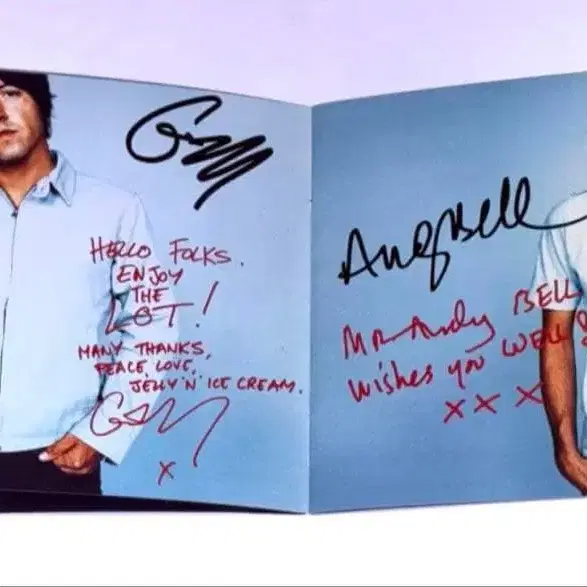 HELLO FOLKS.
ENJOY
THE
LOT!
MANY THANKS,
PEACE, LOVE,
JELLY 'N' ICE CREAM.
X
Andy Bell
Mr Andy BELL
wishes you WELL
xxx